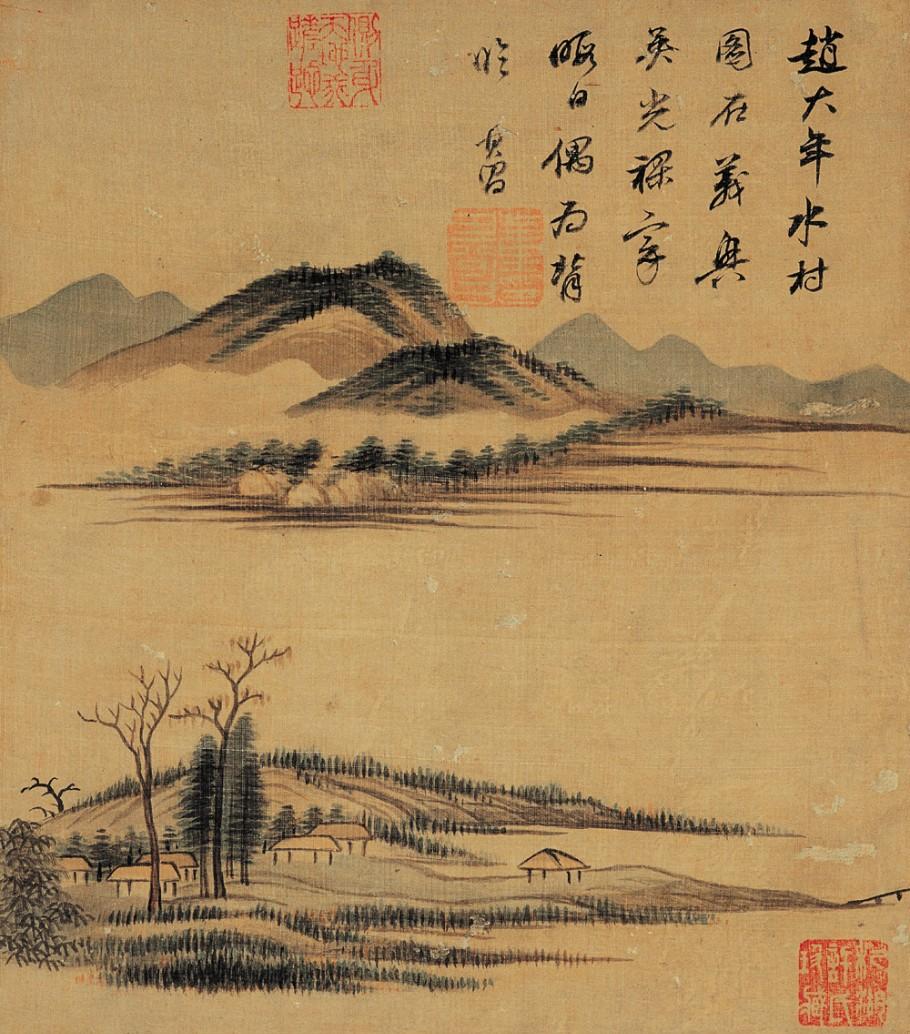 趙大年水村
圖在義興
吳光祿家
暇日偶為背
臨 其昌